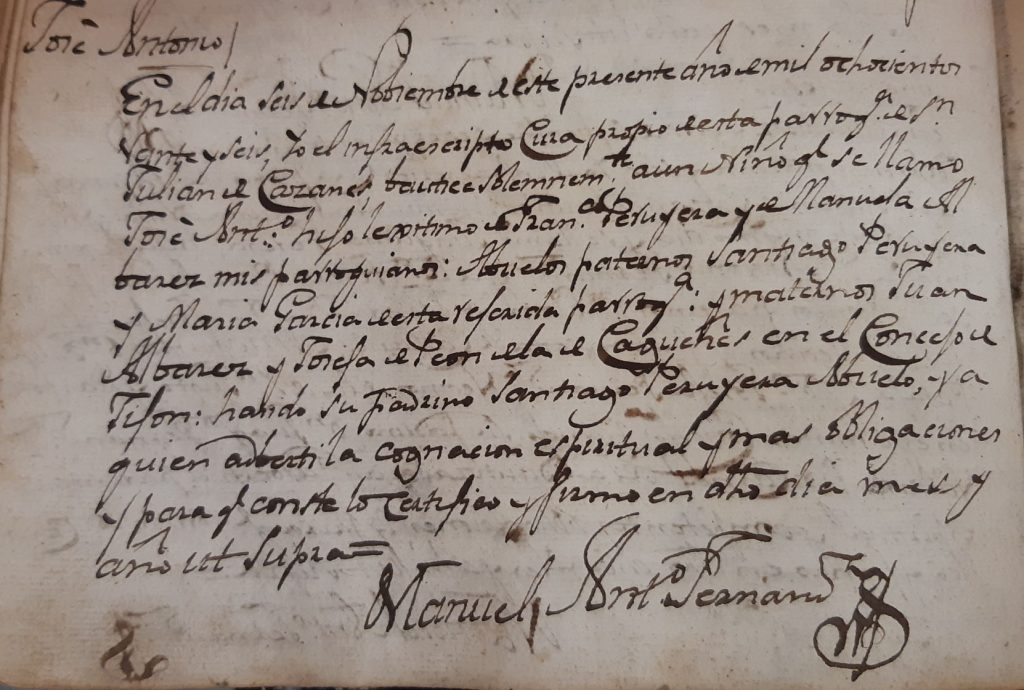 Josè Antonio
En el dia seis de Nobiembre de este presente año de mil ochocientos
Veinte y seis, Yo el infraescripto Cura propio de esta parroq.ª de S.n
Julian de Cazanes, bautice solemnem.te a un Niño q.e se llamo
Josè Ant.o hijo lexitimo de Fran.co Peruyera y de Manuela Al
barez mis parroquianos: Abuelos paternos Santiago Peruyera
y Maria Garcia de esta referida parroq.ª: y maternos Juan
Albarez y Teresa de Peon de la de en el Concejo de
Jijon: siendo su Padrino Santiago Peruyera Abuelo, y a
quien adberti la cognacion espiritual y mas obligaciones
y para q.e conste lo Certifico y firmo en dho dia mes y
año ut supra=
Manuel Ant.o Fernand